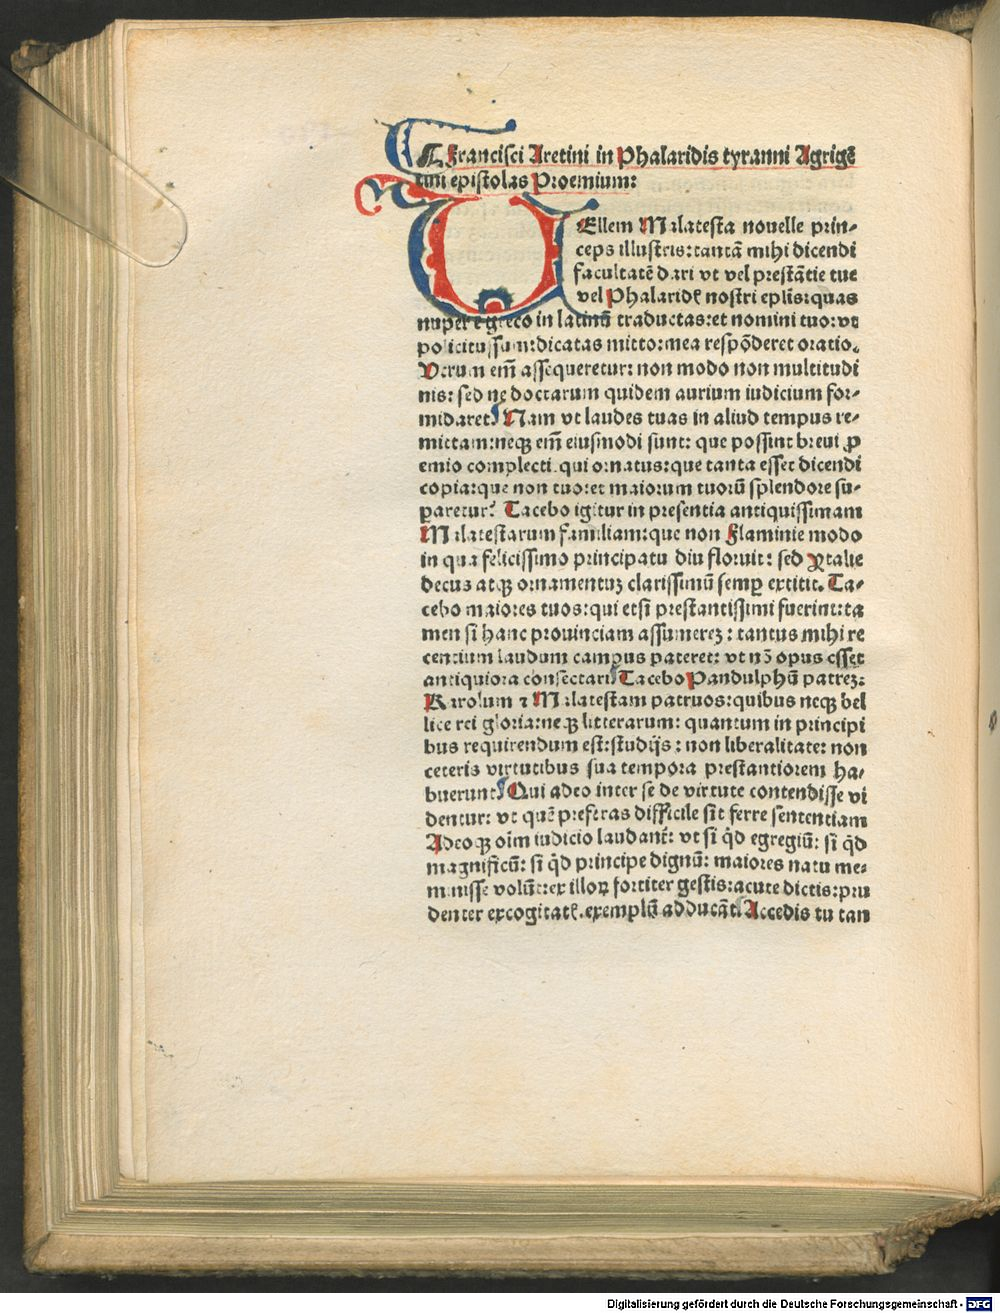 Francisci Aretini in Phalaridis tyranni Agrigē
tini epistolas Proemium:
VEllem Malatesta nouelle prin-
ceps illustris: tantā mihi dicendi
facultatē dari vt vel prestātie tue
vel Phalaridꝭ nostri eplis: quas
nuper e greco in latinū traductas: et nomini tuo: vt
policitus sum: dicatas mitto: mea respōderet oratio.
Verum em̄ assequeretur: non modo non multitudi
nis: sed ne doctarum quidem aurium iudicium for-
midaret. Nam vt laudes tuas in aliud tempus re-
mittam: neqꝫ em̄ eiusmodi sunt: que possint breui ꝓ
emio complecti. qui ornatus: que tanta esset dicendi
copia: que non tuo: et maiorum tuorū splendore su-
ꝑaretur? Tacebo igitur in presentia antiquissimam
Malatestarum familiam: que non Flaminie modo
in qua felicissimo principatu diu floruit: sed Ytalie
decus atqꝫ ornamentuꝫ clarissimū semꝑ extitit. Ta-
cebo maiores tuos: qui etsi prestantissimi fuerint: ta
men si hanc prouinciam assumereꝫ: tantus mihi re
centium laudum campus pateret: vt nō opus esset
antiquiora consectari. Tacebo Pandulphū patreꝫ:
Karolum ⁊ Malatestam patruos: quibus neqꝫ bel
lice rei gloria: neqꝫ litterarum: quantum in principi
bus requirendum est: studijs: non liberalitate: non
ceteris virtutibus sua tempora prestantiorem ha-
buerunt. Qui adeo inter se de virtute contendisse vi
dentur: vt quē preferas difficile sit ferre sententiam
Adeoqꝫ oīm iudicio laudant̄: vt si qd̄ egregiū: si qd̄
magnificū: si qd̄ principe dignū: maiores natu me-
minisse volūt: ex illoꝝ fortiter gestis: acute dictis: pru
denter excogitatꝭ. exemplū adducāt. Accedis tu tan
Digitalisierung gefördert durch die Deutsche Forschungsgemeinschaft - DFG